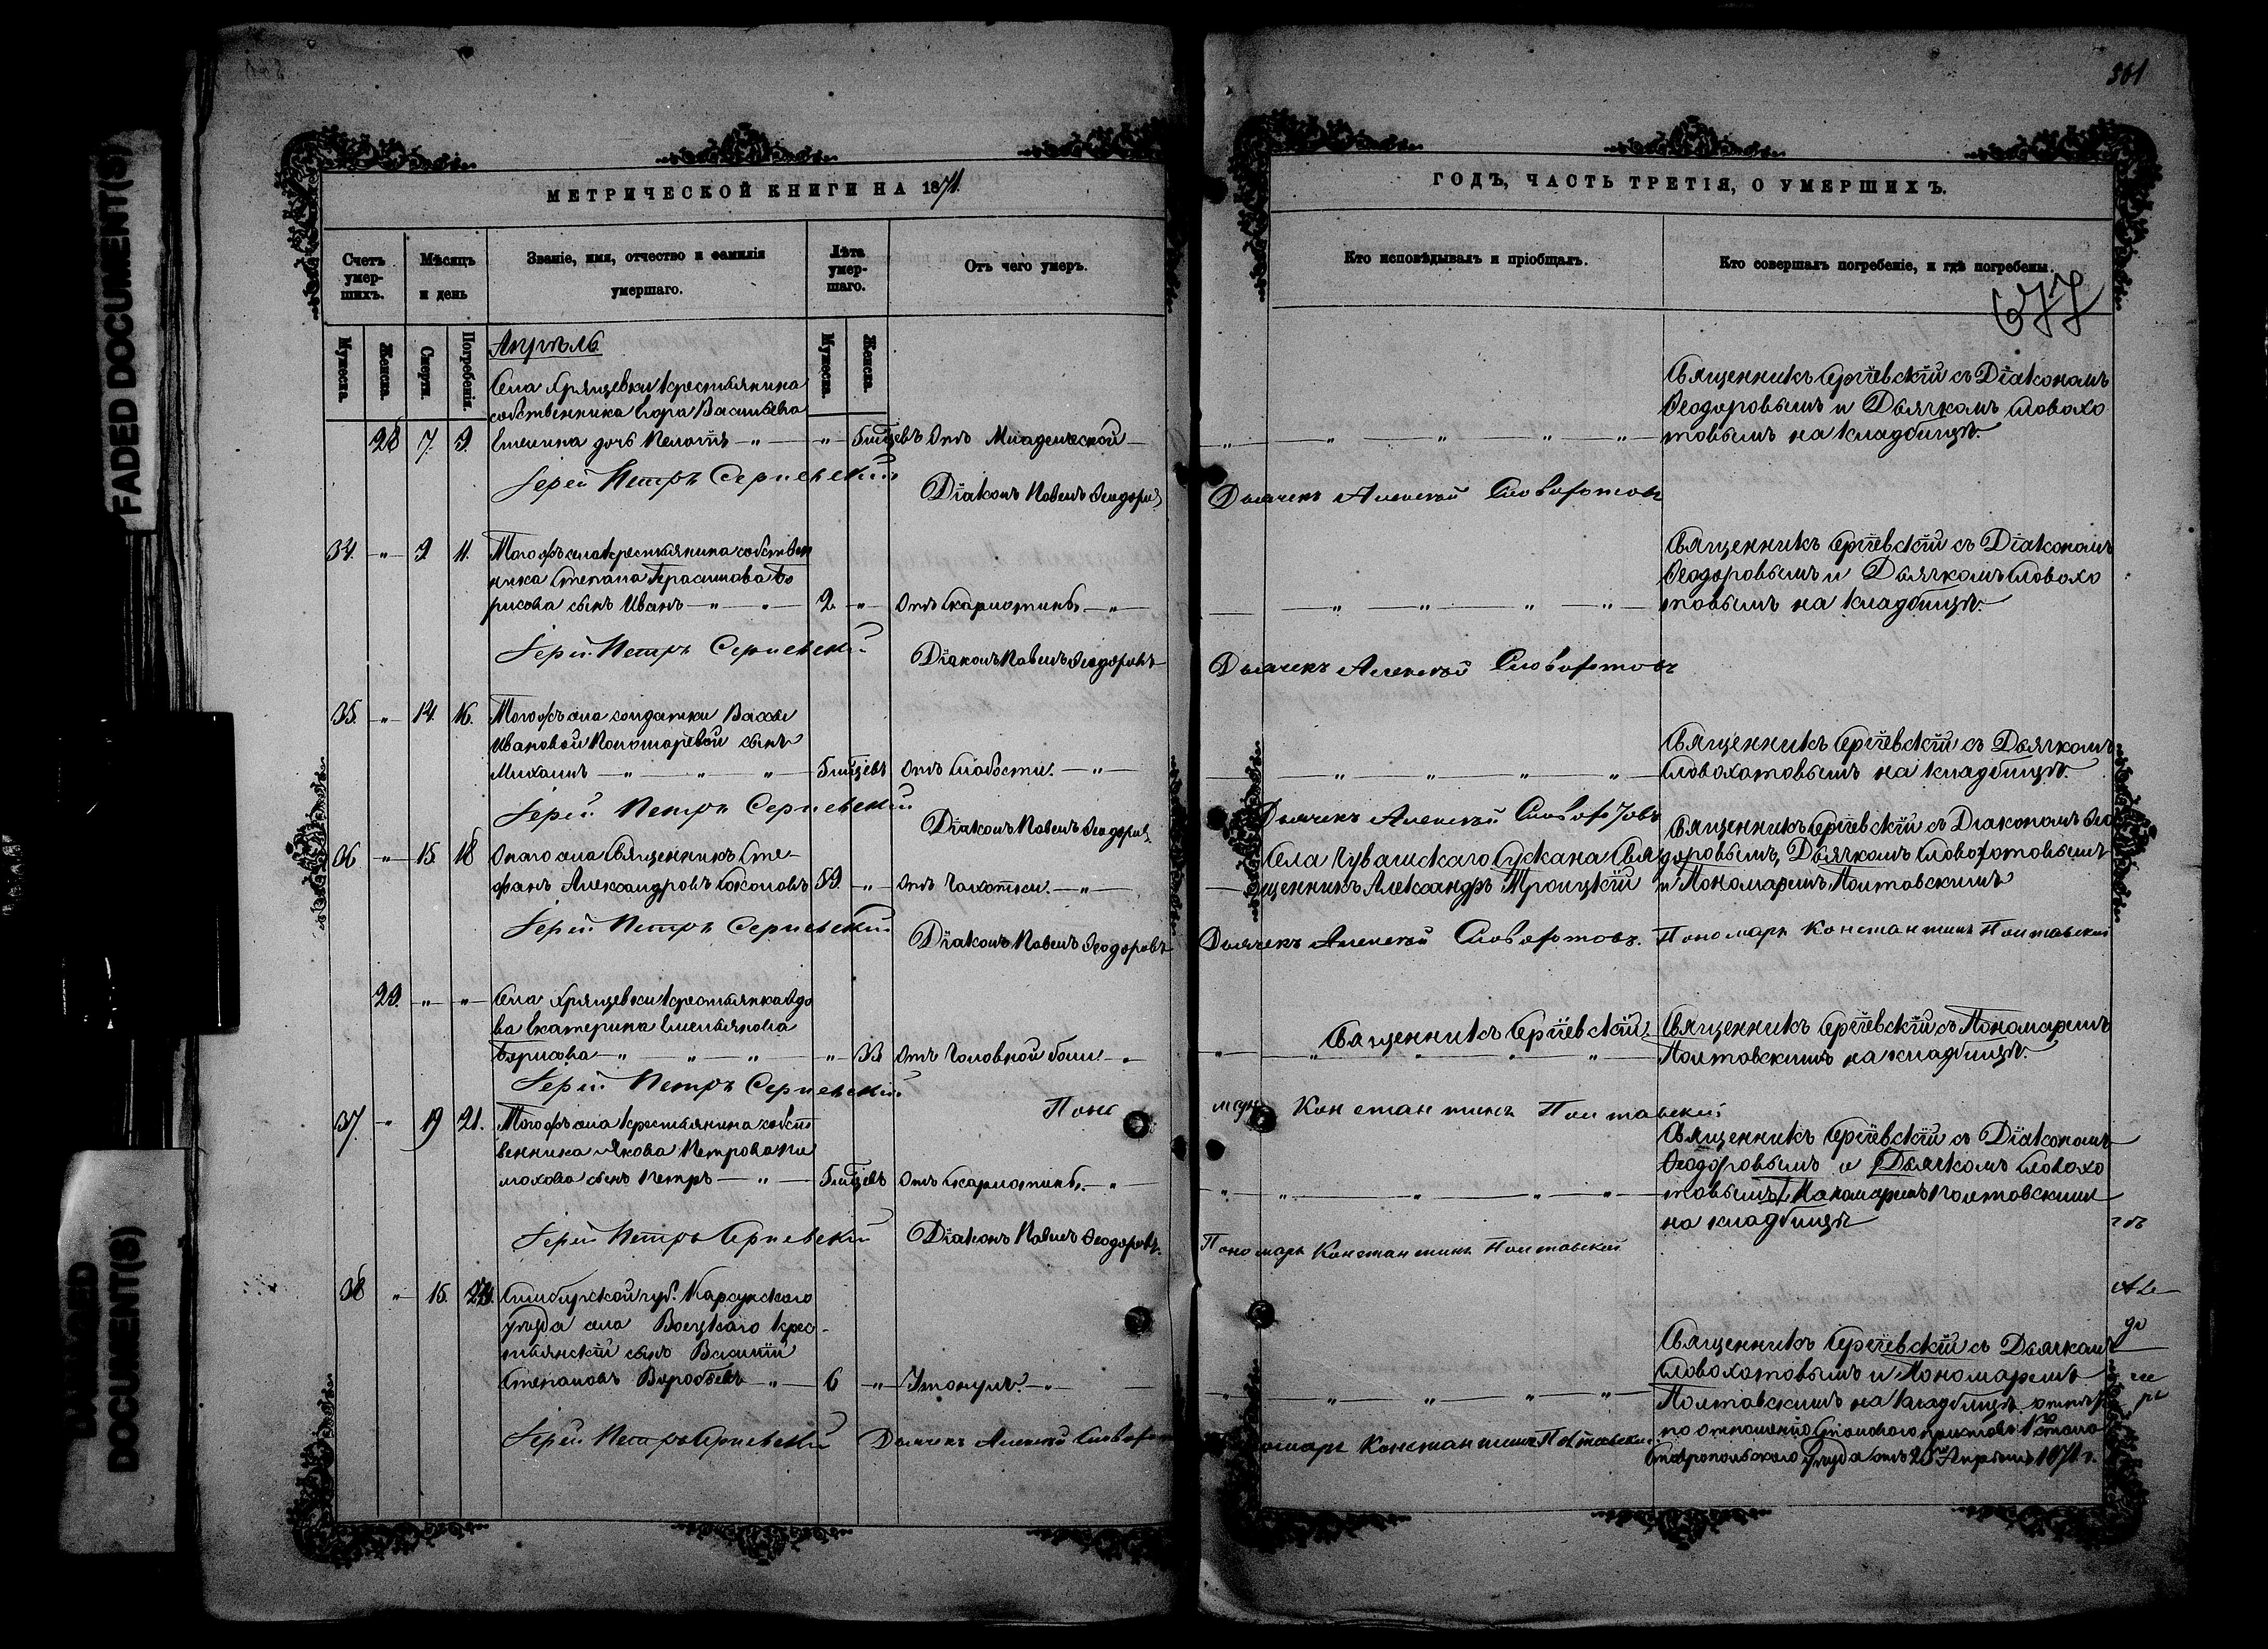 FADED DOCUMENT(S)
DOCUMENT(S)
МЕТРИЧЕСКОЙ КНИГИ НА 1871.
Счетъ умершихъ.
Мѣсяцъ и день
Званіе, имя, отчество и фамилія умершаго.
Лѣта умершаго.
Отъ чего умеръ.
Мужеска.
Женска.
Смерти.
Погребенія.
Мужеска.
Женска.
Апрѣль
Села Хрящевки крестьянина
собственника Егора Васильева
28 7. 9. дочь — „ — „ 5 мѣсяцевъ Отъ Младенческой
Іерей Петръ Сергіевскій
Діаконъ Павелъ Ѳеодоровъ
34. „ 9 11. Тогожъ села крестьянина собствен
ника Степана Герасимова Бо
рисова сынъ Иванъ — „ — 2 „ Отъ скарлотины — „
Іерей Петръ Сергіевскій
Діаконъ Павелъ Ѳеодоровъ
35. „ 14. 16. Тогожъ села солдатки Вассы
Ивановой Пономаревой сынъ
Михаилъ — „ — „ — „ 5 мѣсяцевъ Отъ слабости. — „
Іерей Петръ Сергіевскій
Діаконъ Павелъ Ѳеодоровъ
36 „ 15. 18 Онаго села Священникъ Сте-
фанъ Александровъ Соколовъ 59. „ Отъ Чахотки. — „
Іерей Петръ Сергіевскій
Діаконъ Павелъ Ѳеодоровъ
29. „ „ Села Хрящевки крестьянка вдо
ва Екатерина Емельянова
Борисова — „ — „ — „ 33 Отъ Головной боли — „
Іерей Петръ Сергіевскій
Поно
37. „ 19 21. Тогожъ села крестьянина собст
венника Якова Петрова
сынъ Петръ — „ — 5 мѣсяцевъ Отъ скарлотины. — „
Іерей Петръ Сергіевскій
Діаконъ Павелъ Ѳеодоровъ.
38 „ 15. Симбирской губ. Карсунскаго
уѣзда села Воецкаго крес-
тьянскій сынъ Василій
Степановъ Воробьевъ — „ — 6 „ Утонулъ. — „
Іерей Петръ Сергіевскій
Дьячекъ Алексѣй Словохотовъ
561
ГОДЪ, ЧАСТЬ ТРЕТІЯ, О УМЕРШИХЪ.
Кто исповѣдывалъ и пріобщалъ.
Кто совершалъ погребеніе, и гдѣ погребены.
677
Священникъ Сергіевскій съ Діакономъ
Ѳеодоровымъ и Дьячкомъ Словохо
товымъ на кладбищѣ.
Дьячекъ Алексѣй Словохотовъ
Священникъ Сергіевскій съ Діакономъ
Ѳеодоровымъ и Дьячкомъ Словохо
товымъ на кладбищѣ.
Дьячекъ Алексѣй Словохотовъ
Священникъ Сергіевскій съ Дьячкомъ
Словохотовымъ на кладбищѣ.
Дьячекъ Алексѣй Словохотовъ
Села Чувашскаго Сускана Свя
щенникъ Александръ Троицкій
Священникъ Сергіевскій съ Діакономъ Ѳео
доровымъ, Дьячкомъ Словохотовымъ
и Пономаремъ Полтавскимъ
Дьячекъ Алексѣй Словохотовъ. Пономарь Константинъ Полтавскій
Священникъ Сергіевскій.
Священникъ Сергіевскій съ Пономаремъ
Полтавскимъ на кладбищѣ.
марь Константинъ Полтавскій
Священникъ Сергіевскій съ Діакономъ
Ѳеодоровымъ и Дьячкомъ Словохо
товымъ Пономаремъ Полтавскимъ
на кладбищѣ
Пономарь Константинъ Полтавскій
Священникъ Сергіевскій съ Дьячкомъ
Словохотовымъ и Пономаремъ
Полтавскимъ на кладбищѣ
по отношенію Становаго пристава 1го стана
Ставропольскаго уѣзда отъ Апрѣля 1871 г.
Пономарь Константинъ Полтавскій